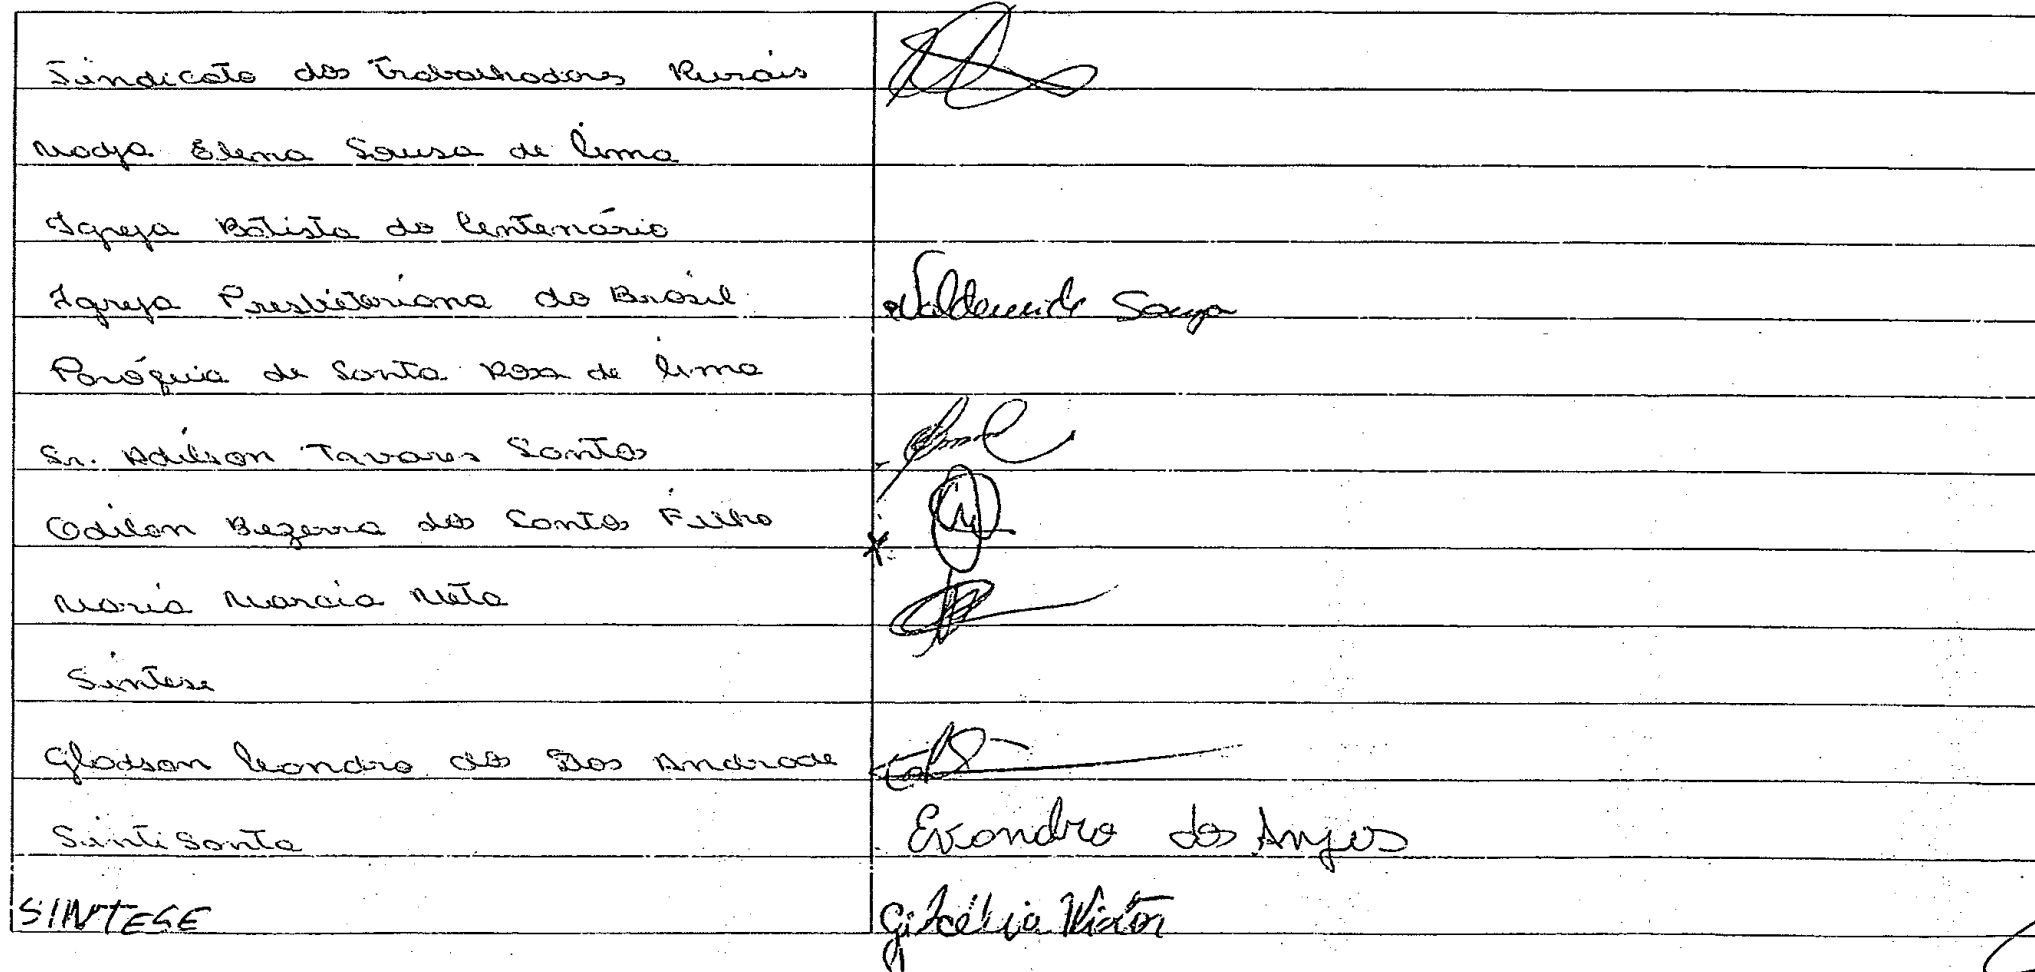 Sindicato dos Trabalhadores Rurais
Nadja Elena Sousa de Lima
Igreja Batista do Centenário
Igreja Presbiteriana do Brasil Souza
Paróquia de Santa Rosa de Lima
Sr. Adilson Tavares Santos
Odilon Bezerra dos Santos Filho
Maria Marcia Mota
Sintese
Gladson Leandro dos Andrade
Sintisanta Evandro dos Anjos
SINTESE